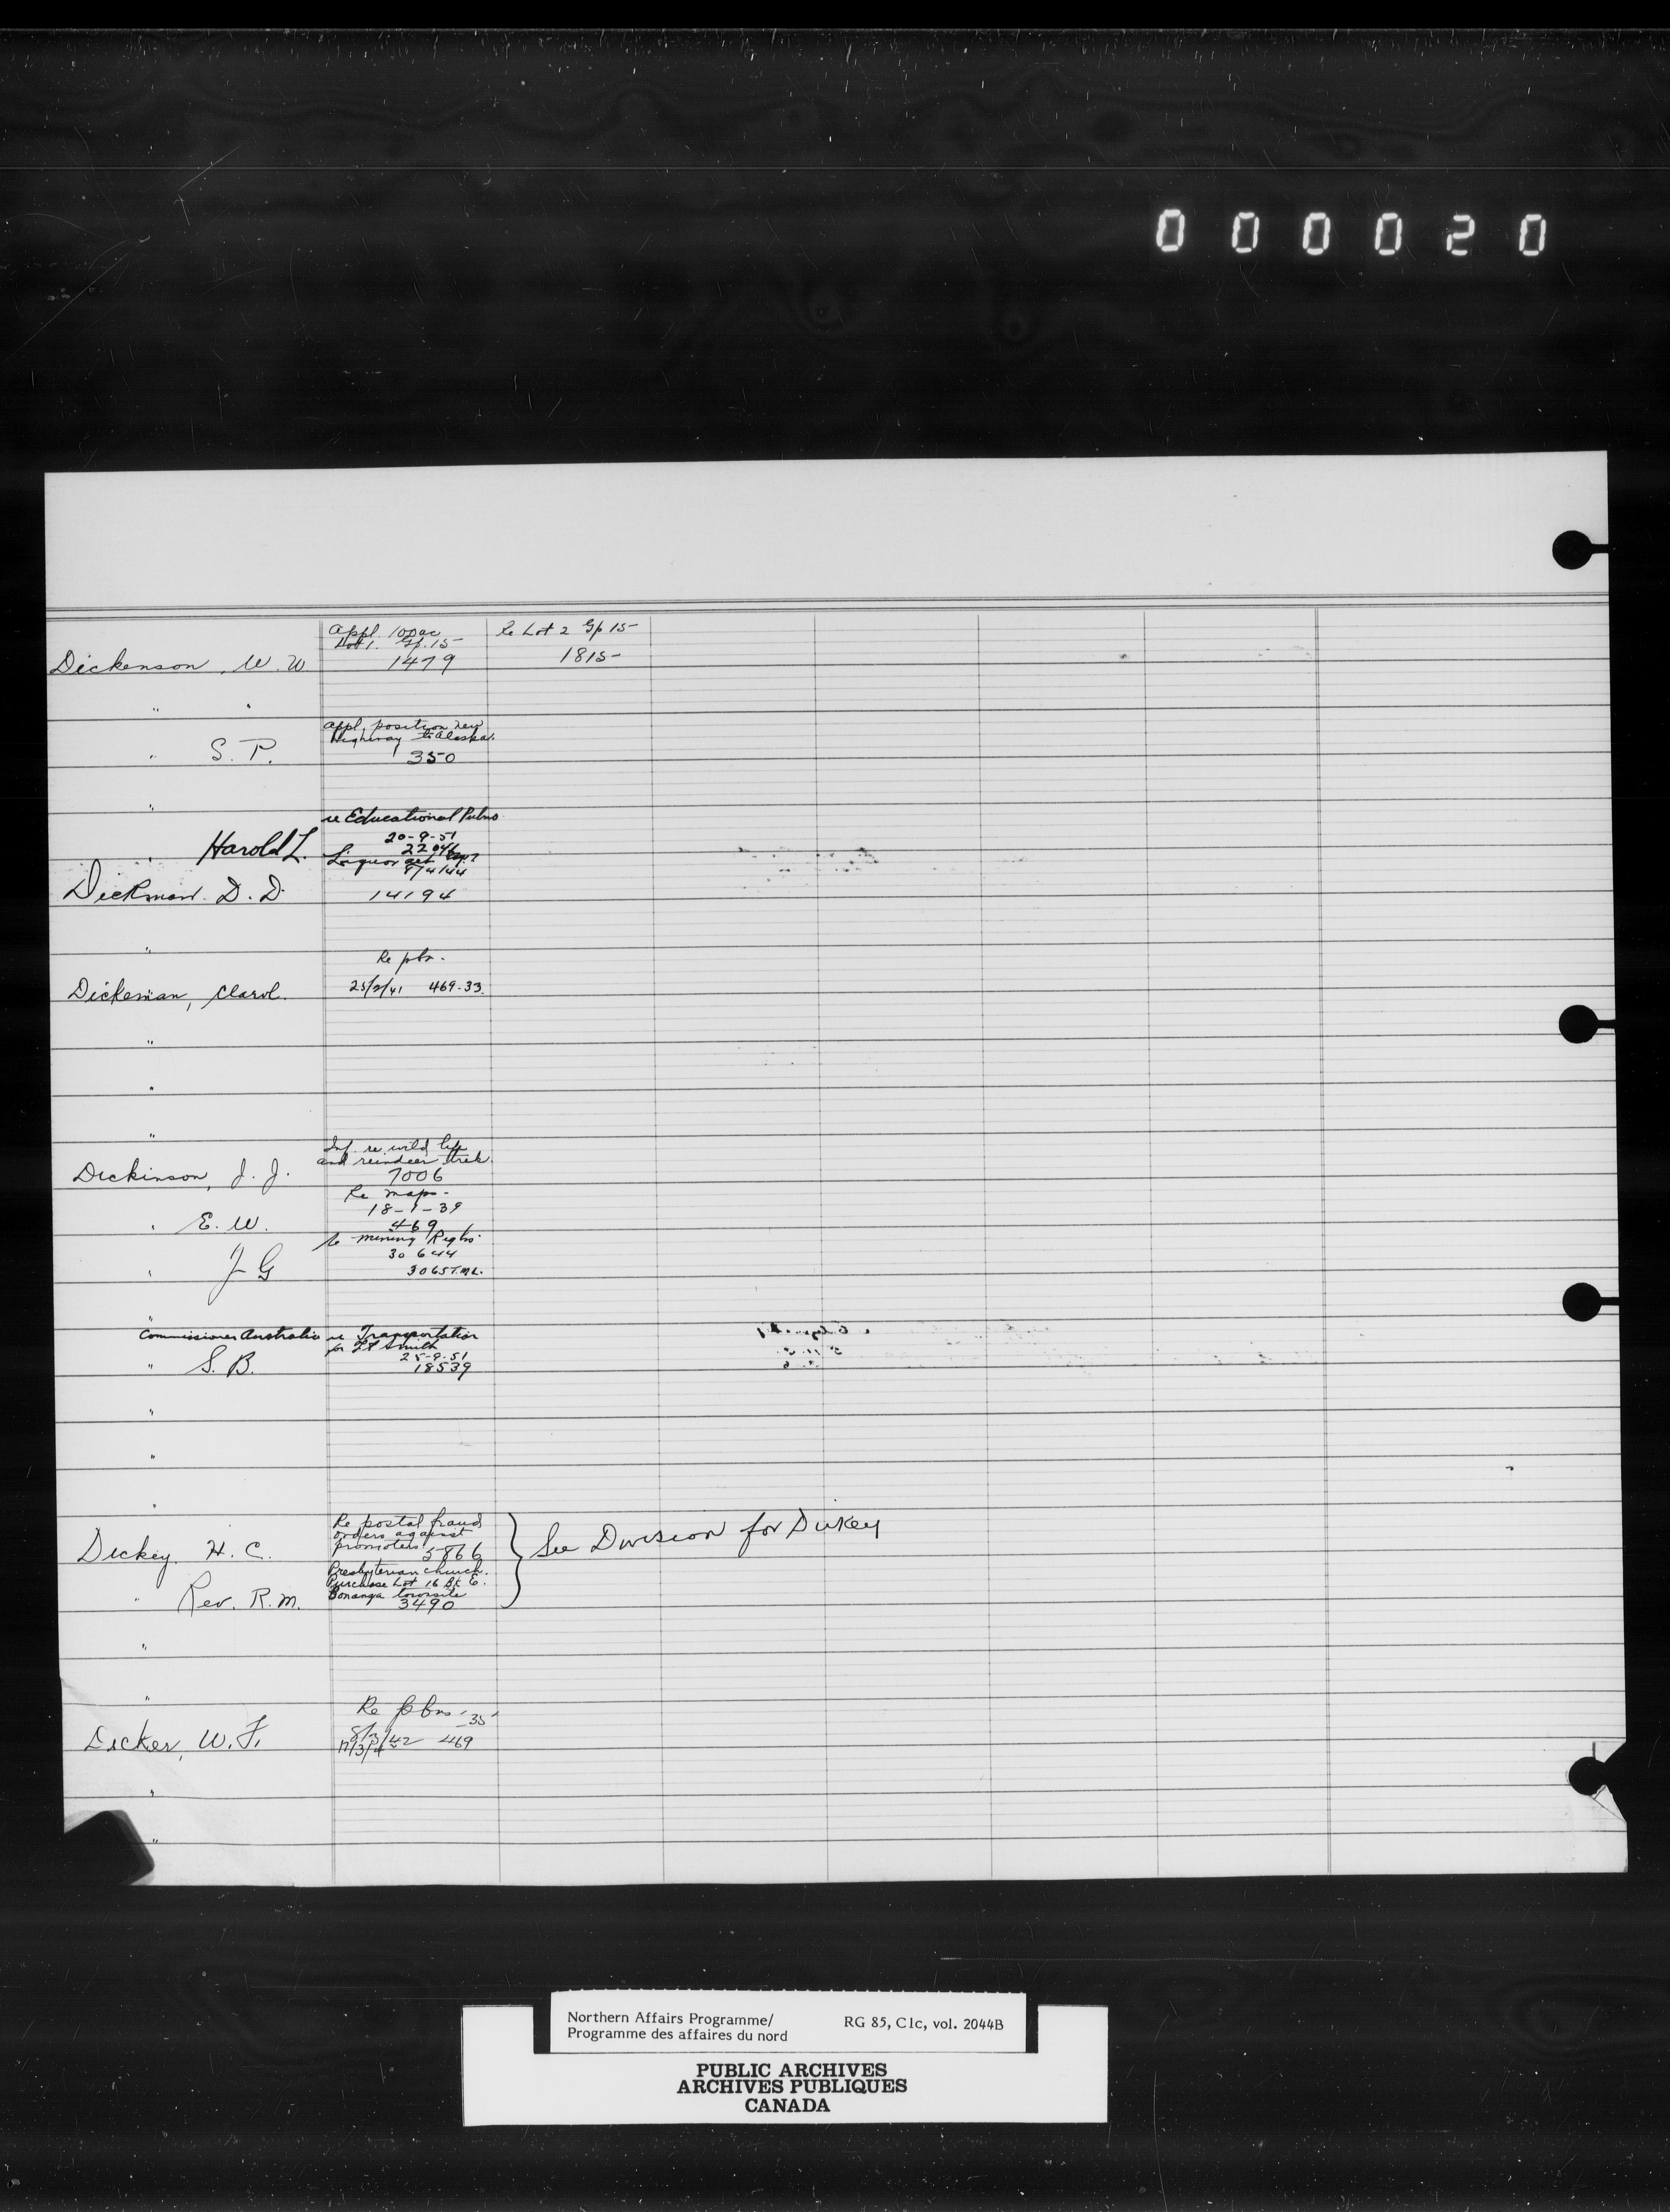 0 0 0 0 2 0
Appl. 100 ac Re Lot 2 Gp 15-
Lot 1. Gp. 15-
Dickenson, W. W. 1479 1815-
" "
Appl. position new
Highway to Alaska.
" S. P. 350
"
re Educational Pubns
20-9-51
" Harold L. 2204
Liquor act
8/4/44
Dickman. D. D. 14194
"
Re pbs.
Dickeman, Carol. 25/2/41 469-33.
"
"
"
Inf. re wild life
and reindeer trek.
Dickinson, J. J. 7006
Re maps-
18-1-39
" E. W. 469
Re mining Regtns
30 6 44
" J G 3065 T.M.L.
"
Commissioner Australia re Transportation
for Ft Smith
25-9-51
" S. B. 18539
"
"
"
Re postal fraud
orders against
promoters See Division for Dickey
Dickey. H. C. 5866
Presbyterian church.
Purchase Lot 16 Bk E.
Bonanza townsite
" Rev. R. M. 3490
"
"
Re pbns -35
8/3/42
Dicker, W. F. 17/3/42 469
"
"
Northern Affairs Programme/ RG 85, C1c, vol. 2044B
Programme des affaires du nord
PUBLIC ARCHIVES
ARCHIVES PUBLIQUES
CANADA